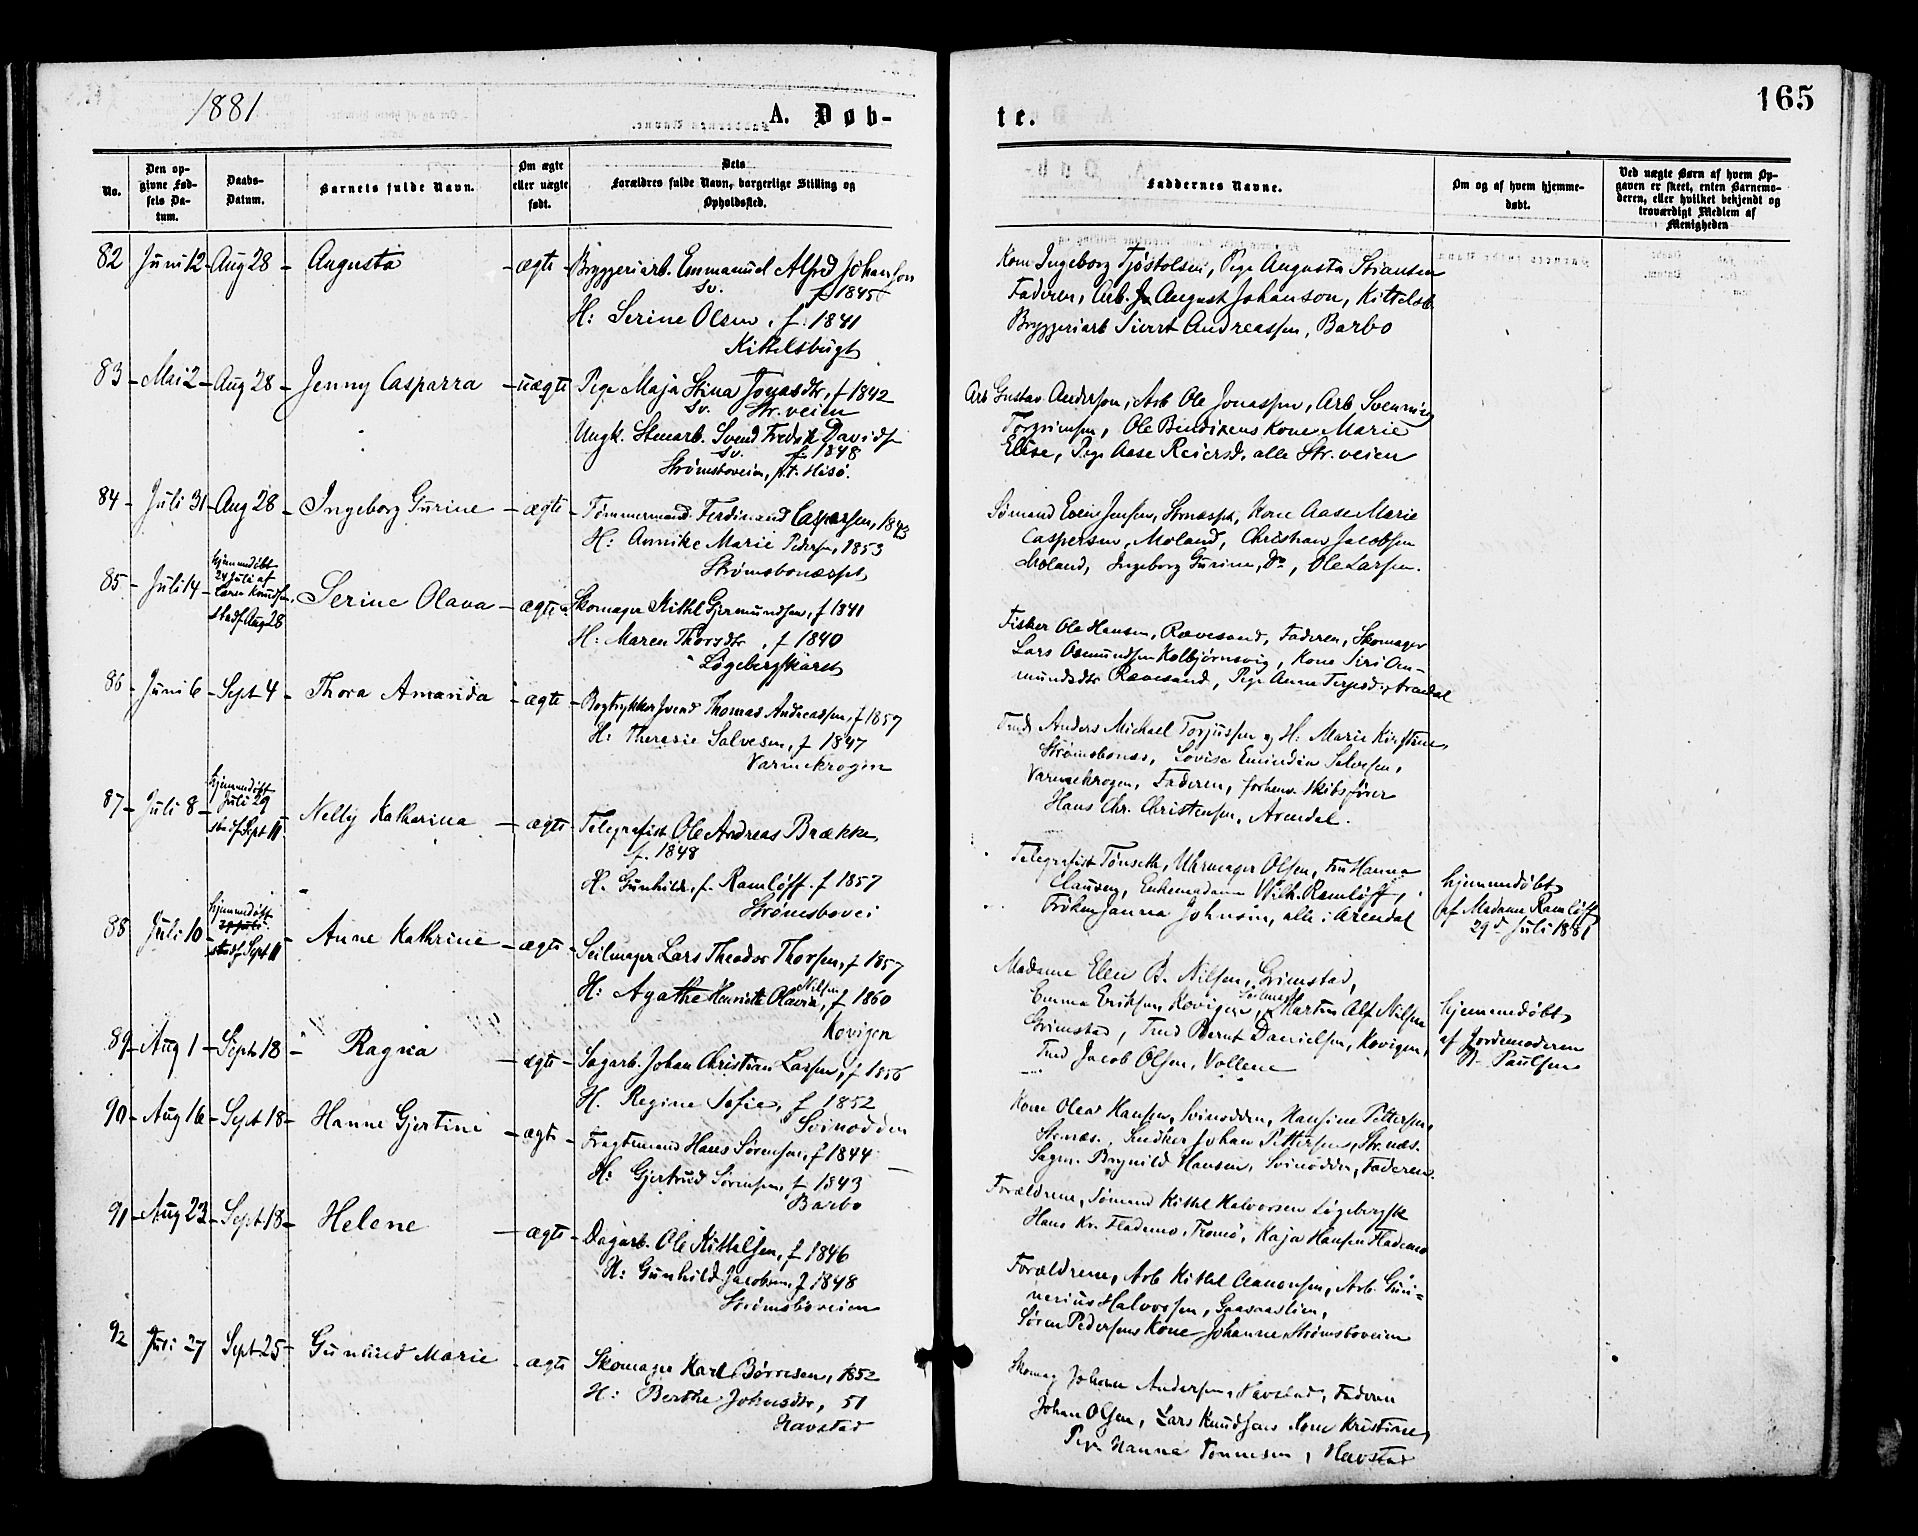 1881
A. Døb-
te.
165
No.
Den op-
givne Fød-
sels Da-
tum.
Daabs-
Datum.
Barnets fulde Navn.
Om ægte
eller uægte
født.
Dets
Forældres fulde Navn, borgerlige Stilling og
Opholdssted.
Faddernes Navne.
Om og af hvem hjemme-
døbt.
Ved uægte Børn af hvem Op-
gaven er skeet, enten Barnemo-
deren, eller hvilket bekjendt og
troværdigt Medlem af
Menigheden
82 Juni 12 - Aug 28 - Augusta - ægte - Bryggeriarb. Emmanuel Alfred Johanson
Sv. f 1845
H: Serine Olsen, f. 1841
Kittelsbugt
Kone Ingeborg Tjøstolsen, Pige Augusta Stiansen
Faderen, Arb. August Johanson, Kittelsb.
Bryggeriarb Sivert Andreassen, Barbo
83 - Mai 2 - Aug 28 - Jenny Casparra - uægte - Pige Maja Stina Jonasdtr, f 1842
Sv. Str.veien
Ungk. Stenarb. Svend Fredrik Davids
Sv. f. 1848
Strømsboveien, p.t. Hisø.
Arb Gustav Anderson, Arb Ole Jonassen, Arb. Svenning
Torgrimsen, Ole Bendixens Kone Marie
Elise, Pige Aase Reiersd. alle Str.veien
84 - Juli 31 - Aug 28 - Ingeborg Gurine - ægte - Tømmermand Ferdinand Caspersen, 1843
H: Annike Marie Pedersen, 1853
Strømsbonæsset
Sømand Even Jensen, Strnæsset, Kone Aase Marie
Caspersen, Moland, Christian Jacobsen
Moland, Ingeborg Gurine, Do, Ole Larsen.
85 - Juli 14 - hjemmedøbt
24 Juli af
Karen Knudsen,
stadf Aug 28
Serine Olava - ægte - Skomager Kittel Gjermundsen, f 1841
H: Maren Thorsdtr, f 1840
Løgebergskaret
Fisker Ole Hansen, Rævesand, Faderen, Skomager
Lars Osmundsen Kolbjørnsvig, Kone Siri Os-
mundsdtr Rævesand, Pige Anne Terjesd., Arendal
86 - Juni 6 - Sept 4 - Thora Amanda - ægte - Bogtrykkersvend Thomas Andreassen, f 1857
H: Therese Salvesen, f 1847
Varmekrogen
Tmd Anders Michael Torjussen og H: Marie Kirstine
Strømsbonæs, Lovise Emindia Salvesen,
Varmekrogen, Faderen, forhenv. Skibsfører
Hans Chr. Christensen, Arendal.
87 - Juli 8 - hjemmedøbt
Juli 29
stadf Sept 11
Nelly Katharina - ægte - Telegrafist Ole Andreas Brække,
f. 1848
H. Gunhilde, f. Ramløff. f 1857
Strømsbovei
Telegrafist Tønseth, Uhrmager Olsen, Fru Hanna
Clausen, Enkemadame Wilh. Ramløff,
Frøken Janna Johnsen, alle i Arendal
hjemmedøbt
af Madame Ramløff
29de Juli 1881
88 Juli 10 - hjemmedøbt
29 Juli.
stadf Sept 11
Anne Kathrine - ægte - Seilmager Lars Theodor Thorsen, f 1857
H: Agathe Henriette Olavia, Nilsen, f 1860
Kovigen
Madame Elen B. Nilsen, Grimstad,
Emma Eriksen, Kovigen, Seilmager Martin Alf Nilsen
Grimstad, Tmd Bernt Danielsen, Kovigen,
Tmd Jacob Olsen, Vollene
hjemmedøbt
af Jordemoderen
B. Paulsen
89 - Aug 1 - Sept 18 - Ragna - ægte - Sagarb. Johan Christian Larsen, f 1856
H. Regine Sofie, f 1852
Svinodden
Kone Olea Hansen, Svinodden, Hansine Pettersen,
Strnæs, Snedker Johan Pettersen, Str.næs.
Sagm. Brynild Hansen, Svinodden, Faderen.
90 - Aug 16 - Sept 18 - Hanne Gjertine - ægte - Fragtemand Hans Sørensen, f 1844
H: Gjertrud Sørensen, f 1843
Barbo
Forældrene, Sømand Kittel Halvorsen Løgebergsk
Hans Kr. Flademo, Tromø, Kaja Hansen Flademo
91 - Aug 23 - Sept 18 - Helene - ægte - Dagarb. Ole Kittelsen, f 1846
H: Gunhild Jacobsen, f 1848
Strømsboveien
Forældrene, Arb Kittel Aanonsen, Arb. Gun-
nerius Halvorsen, Gaasaaslien,
Søren Pedersens Kone Johanne Strømsboveien
92 Juli 27 - Sept 25 - Gunhild Marie - ægte - Skomager Karl Børresen, 1852
H: Berthe Johnsdtr, 51
Havstad
Skomag Johan Andersen, Havstad, Faderen
Johan Olsen, Lars Knudsens Kone Kristine,
Pige Hanna Tønnesen, Havstad